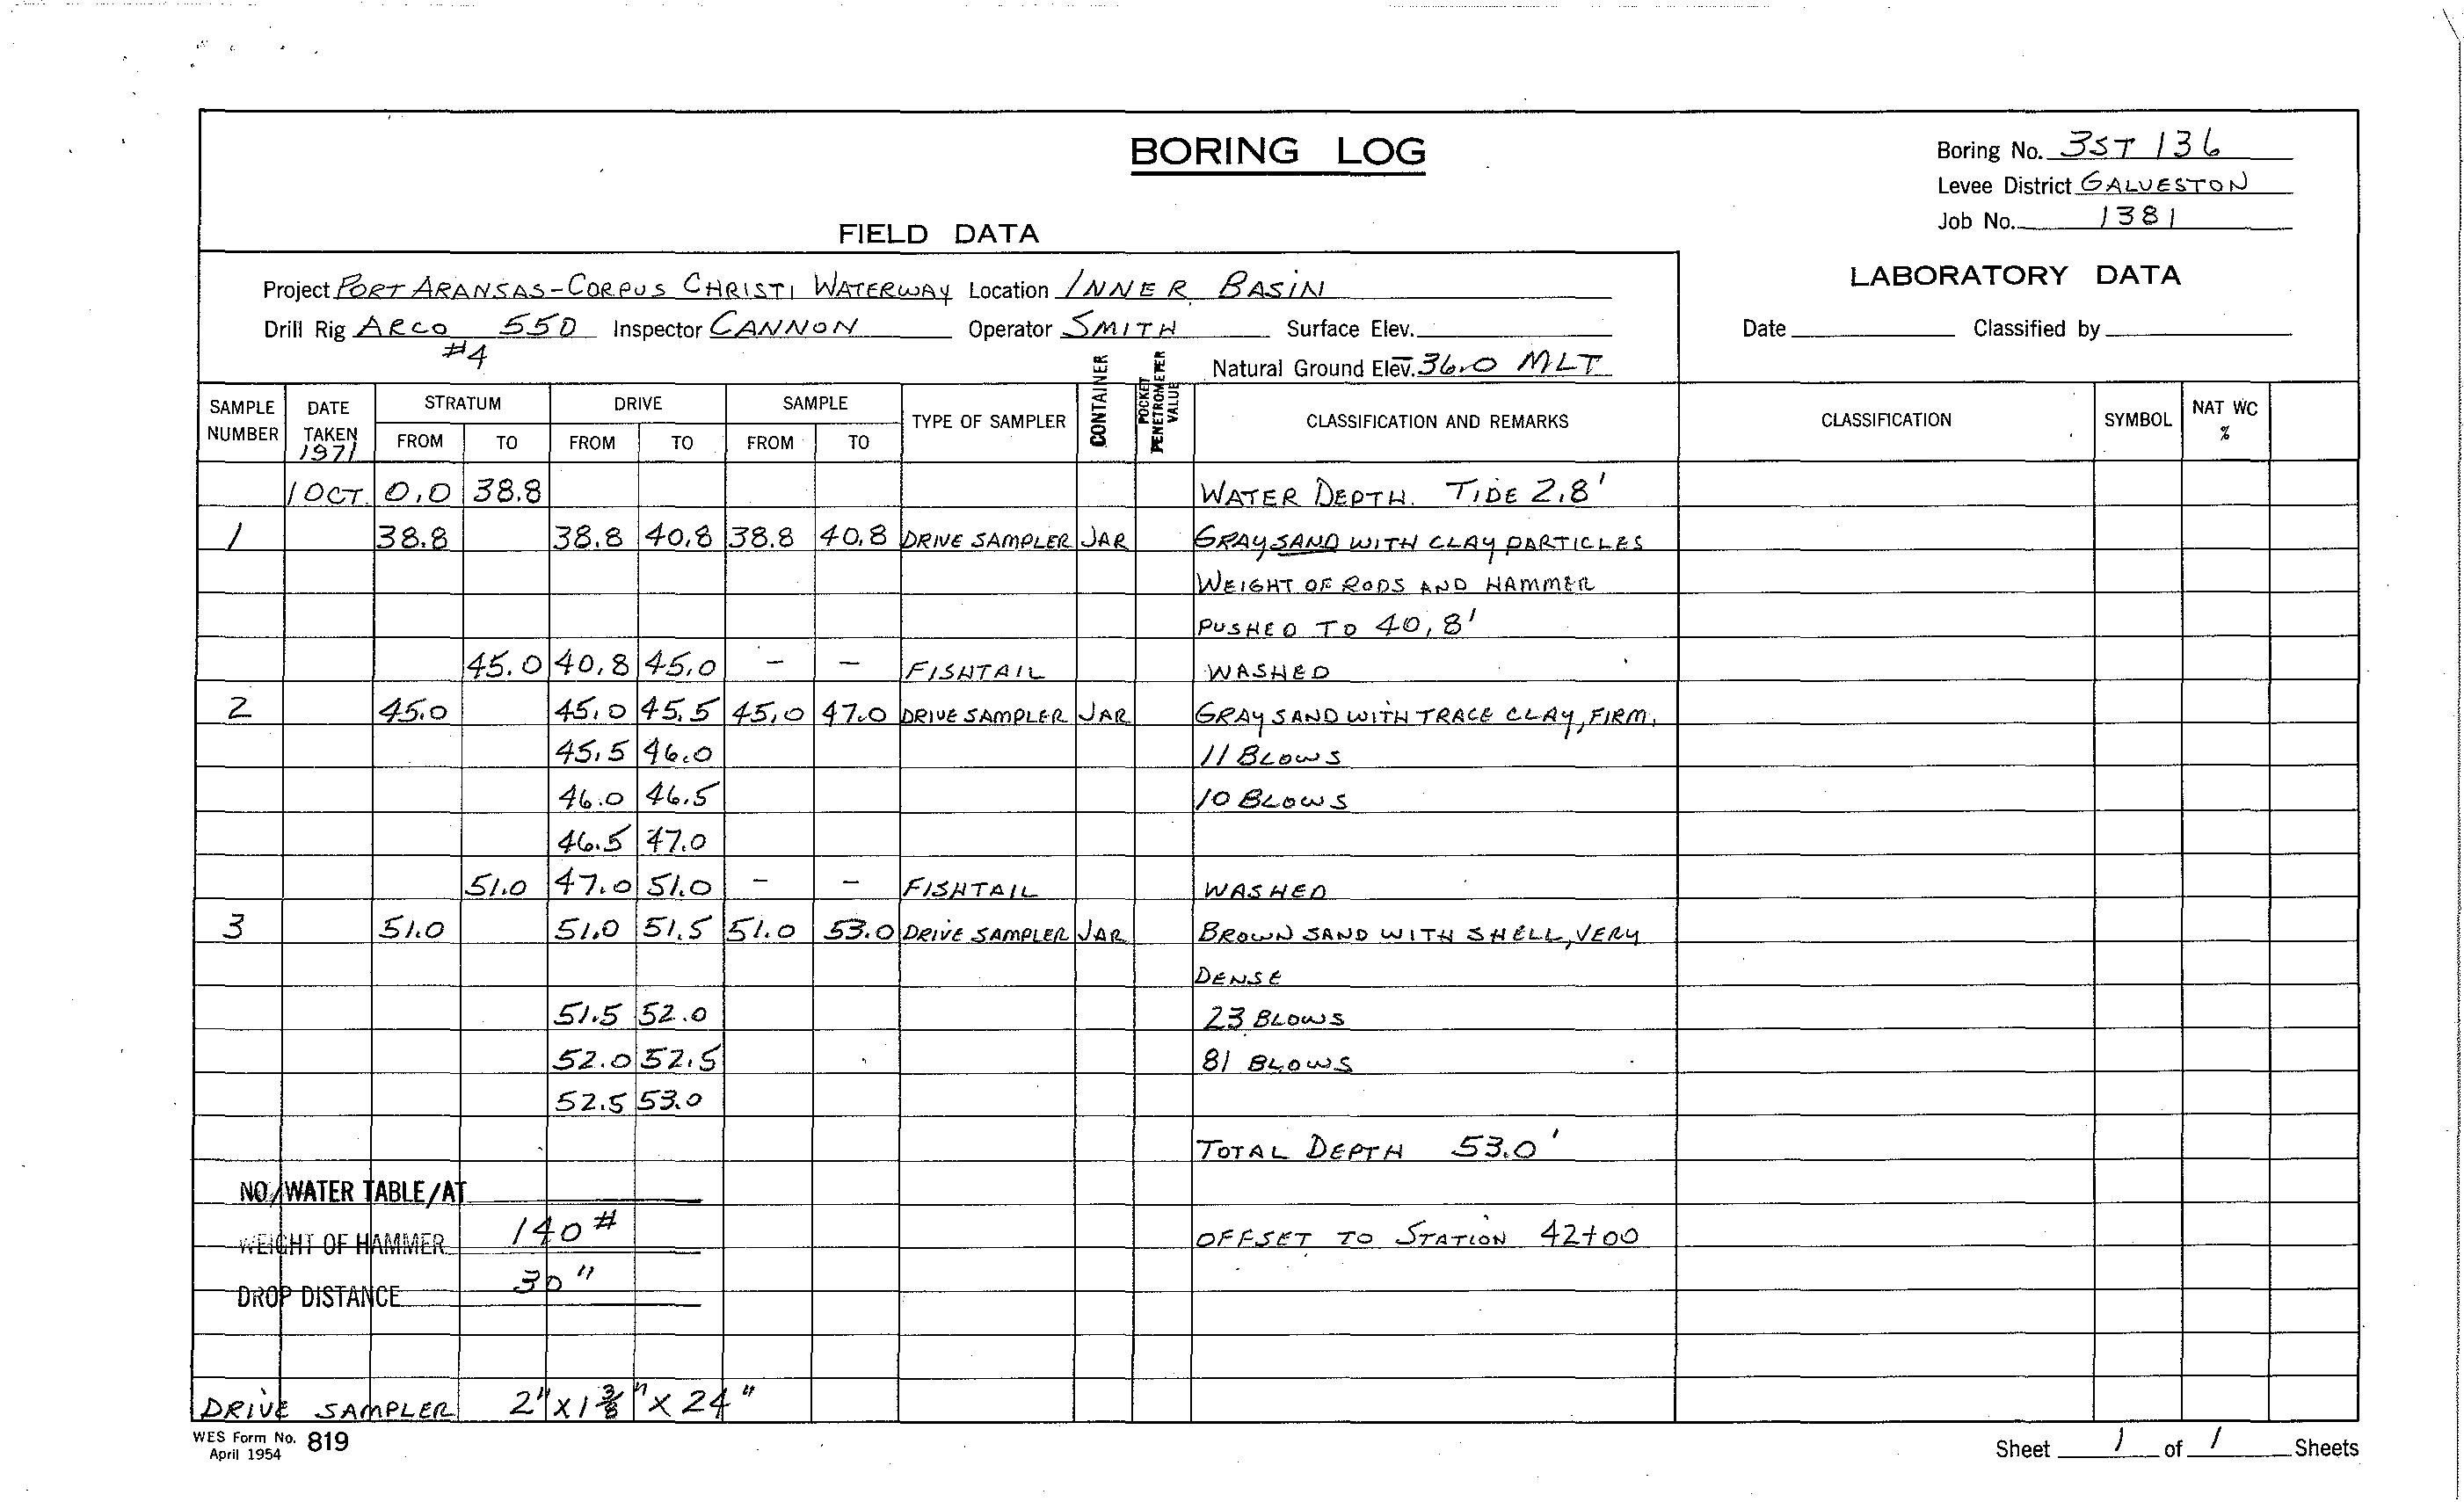 BORING LOG
Boring No. 3ST 136
Levee District GALVESTON
Job No. 1381
FIELD DATA
LABORATORY DATA
Project PORT ARANSAS-CORPUS CHRISTI WATERWAY Location INNER BASIN
Drill Rig ARCO 550 Inspector CANNON Operator SMITH Surface Elev. Date Classified by
#4 Natural Ground Elev. -36.0 MLT
SAMPLE NUMBER DATE TAKEN 1971 STRATUM FROM TO DRIVE FROM TO SAMPLE FROM TO TYPE OF SAMPLER CONTAINER POCKET PENETROMETER VALUE CLASSIFICATION AND REMARKS CLASSIFICATION SYMBOL NAT WC %
1 OCT. 0.0 38.8 WATER DEPTH. TIDE 2.8'
1 38.8 38.8 40.8 38.8 40.8 DRIVE SAMPLER JAR GRAY SAND WITH CLAY PARTICLES
WEIGHT OF RODS AND HAMMER
PUSHED TO 40.8'
45.0 40.8 45.0 - - FISHTAIL WASHED
2 45.0 45.0 45.5 45.0 47.0 DRIVE SAMPLER JAR GRAY SAND WITH TRACE CLAY, FIRM.
45.5 46.0 11 BLOWS
46.0 46.5 10 BLOWS
46.5 47.0
51.0 47.0 51.0 - - FISHTAIL WASHED
3 51.0 51.0 51.5 51.0 53.0 DRIVE SAMPLER JAR BROWN SAND WITH SHELL, VERY
DENSE
51.5 52.0 23 BLOWS
52.0 52.5 81 BLOWS
52.5 53.0
TOTAL DEPTH 53.0'
NO/WATER TABLE/AT
WEIGHT OF HAMMER 140# OFFSET TO STATION 42+00
DROP DISTANCE 30"
DRIVE SAMPLER 2" x 1 3/8" x 24"
WES Form No. 819
April 1954
Sheet 1 of 1 Sheets